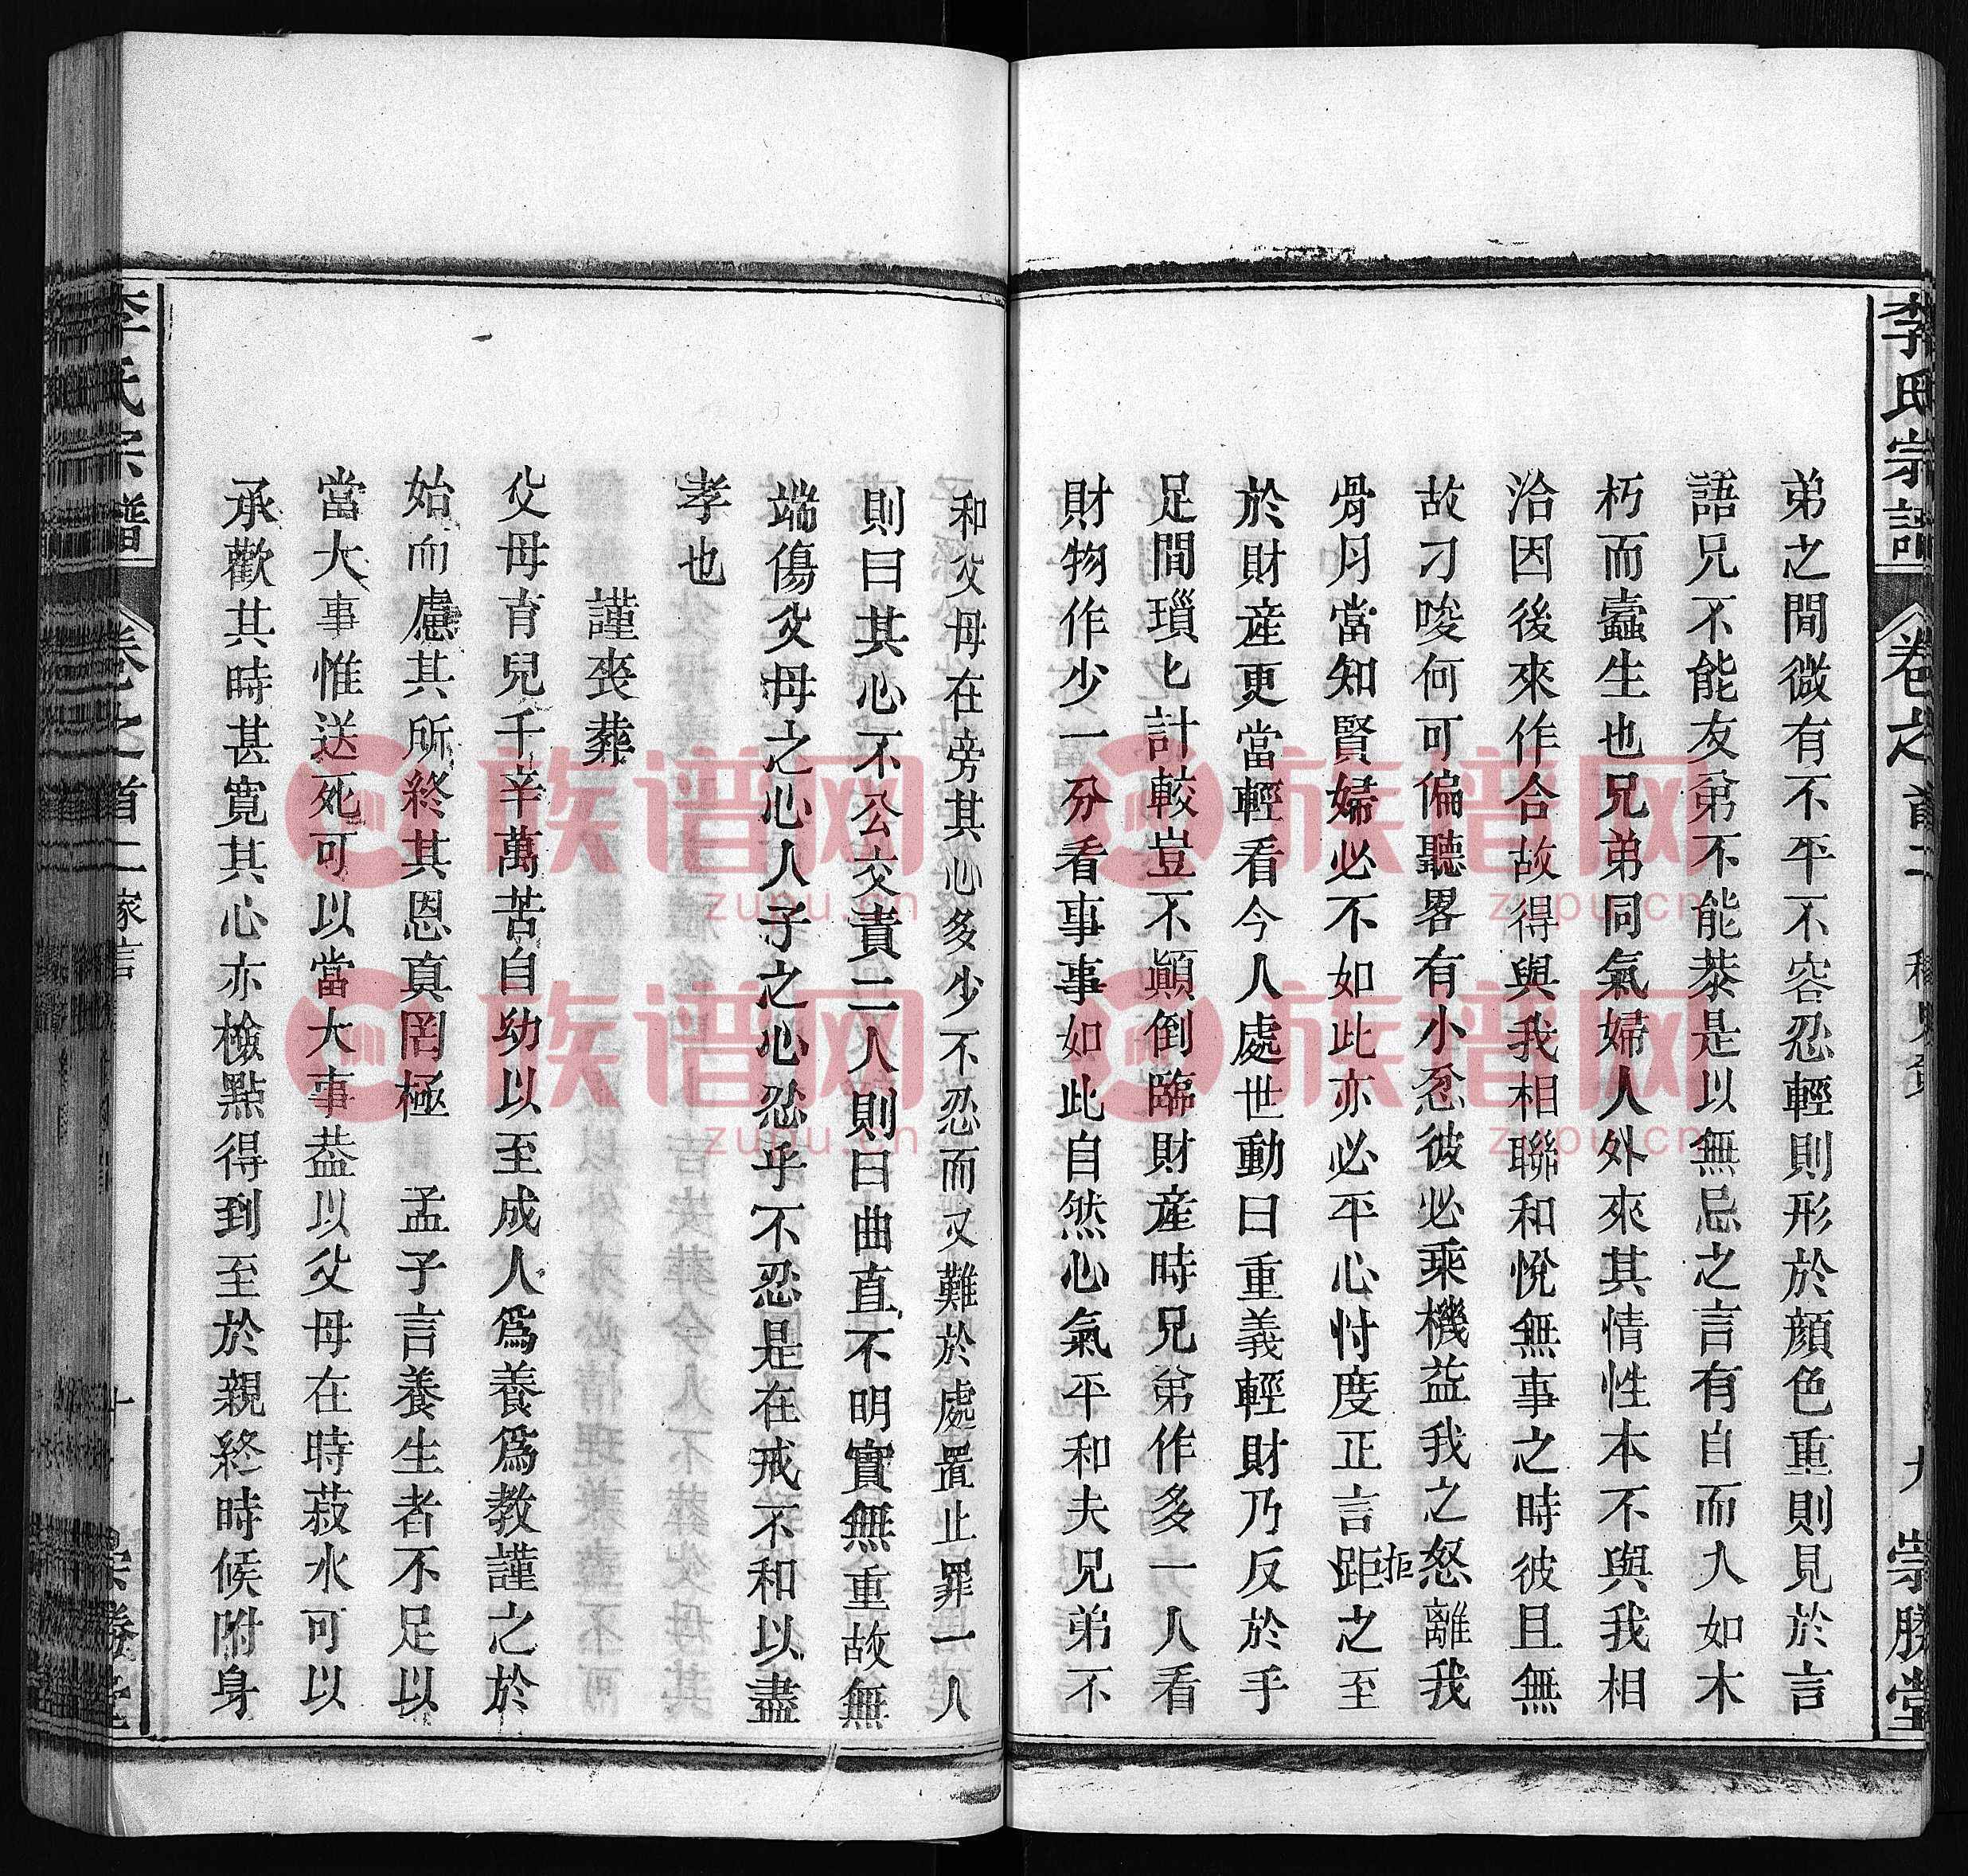 李氏宗譜
卷之首二
九
崇勝堂
弟之間微有不平不容忍輕則形於顏色重則見於言
語兄不能友弟不能恭是以無忌之言有自而入如木
朽而蠹生也兄弟同氣婦人外來其情性本不與我相
洽因後來作合故得與我相聯和悅無事之時彼且無
故刁唆何可偏聽畧有小忿彼必乘機益我之怒離我
骨月當知賢婦必不如此亦必平心忖度正言距之至
拒
於財産更當輕看今人處世動曰重義輕財乃反於手
足間瑣匕計較豈不顚倒臨財産時兄弟作多一人看
財物作少一分看事事如此自然心氣平和夫兄弟不
和父母在旁其心多少不忍而又難於處置止罪一人
則曰其心不公交責二人則曰曲直不明實無重故無
端傷父母之心人子之心忍乎不忍是在戒不和以盡
孝也
謹喪葬
父母育兒千辛萬苦自幼以至成人爲養爲教謹之於
始而慮其所終其恩真罔極 孟子言養生者不足以
當大事惟送死可以當大事葢以父母在時菽水可以
承歡其時甚寬其心亦檢點得到至於親終時候附身
李氏宗譜
卷之首二 家言
十
崇勝堂
族谱网
zupu.cn
族谱网
zupu.cn
族谱网
zupu.cn
族谱网
zupu.cn